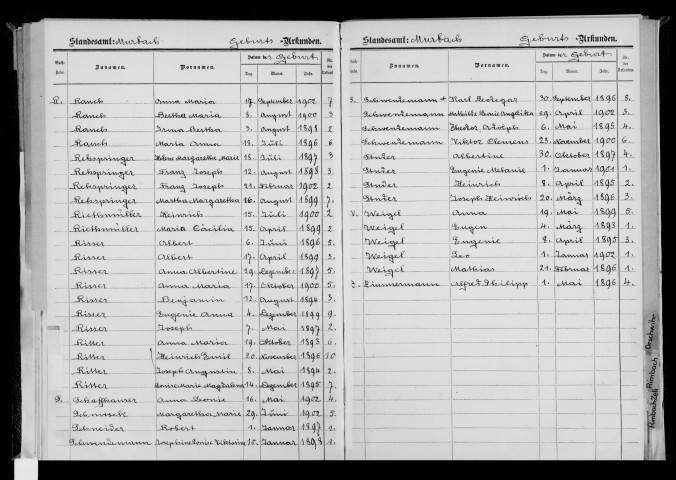 Standesamt: Murbach Geburts-Urkunden.
Buchstabe. Zunamen. Vornamen. Datum der Geburt Nr. der Urkunden
Tag. Monat. Jahr.
R. Rauch Anna Maria 17. September 1902 7
Rauch Bertha Maria 8. August 1900 3
Rauch Irma Bertha 3. August 1898 2
Rauch Maria Anna 18. Juli 1896 6
Rebspringer Helene Margaretha Marie 18. Juli 1897 3
Rebspringer Franz Joseph 12. August 1898 3.
Rebspringer Franz Joseph 21. Februar 1902 2
Rebspringer Martha Margaretha 16. August 1899 7.
Riethmüller Heinrich 15. Juli 1900 2
Riethmüller Maria Cäcilia 15. April 1899 2
Risser Albert 6. Juni 1896 5
Risser Albert 17. April 1899 3
Risser Anna Albertine 29. Dezember 1897 5
Risser Anna Maria 17. Oktober 1900 5.
Risser Benjamin 12. August 1894 3.
Risser Eugenie Anna 4. Dezember 1899 9.
Risser Joseph 7. Mai 1897 2.
Ritter Anna Maria 19. Oktober 1893 6
Ritter Heinrich Emil 20. November 1896 10
Ritter Joseph Augustin 8. Mai 1894 2
Ritter Louise Marie Magdalena 14. Dezember 1895 7.
S. Schaffhauser Anna Leonie 16. Mai 1902 4.
Margaretha Marie 29. Juni 1902 5.
Schneider Robert 1. Januar 1897 1.
Schwendemann Josephine Louise Viktorine 10. Januar 1898 1.
Standesamt: Murbach Geburts-Urkunden.
Buchstabe. Zunamen. Vornamen. Datum der Geburt Nr. der Urkunden
Tag. Monat. Jahr.
S. Schwendemann + Karl Leodegar 30. September 1896 8.
Schwendemann Mathilde Louise Angelika 29. April 1902 3.
Schwendemann Theodor Adolph 6. Mai 1895 4.
Schwendemann Viktor Clemens 23. November 1900 6.
Studer Albertine 30. Oktober 1897 4.
Studer Eugenie Melanie 1. Januar 1901 1.
Studer Heinrich 8. April 1895 2.
Studer Joseph Heinrich 20. März 1896 3.
W. Weigel Anna 19. Mai 1899 5.
Weigel Eugen 4. März 1893 1.
Weigel Eugenie 8. April 1895 3.
Weigel Leo 1. Januar 1902 1.
Weigel Mathias 21. Februar 1896 1.
Z. Zimmermann Alfred Philipp 1. Mai 1896 4.
Rimbach
Rimbachzell